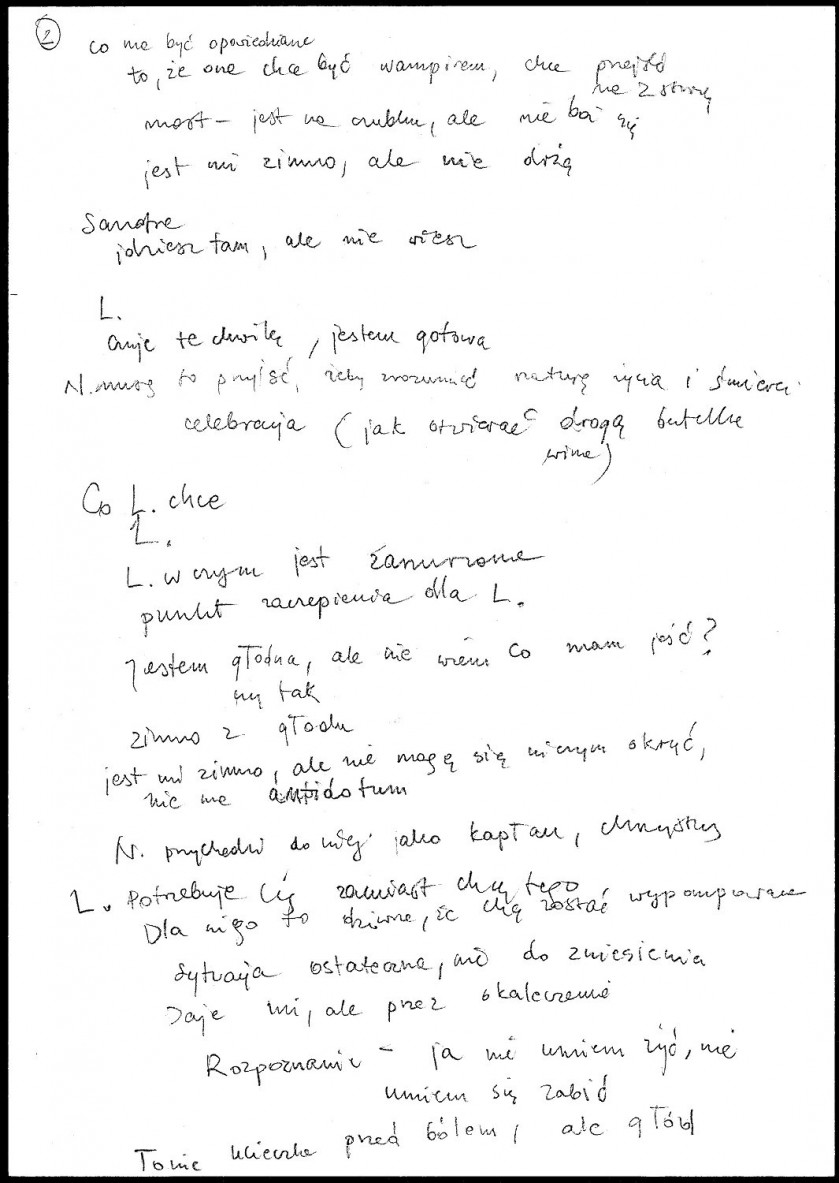 2
co ma być opowiedziane
to, że ona chce być wampirem, chce przejść
na 2 stronę
most – jest na czubku, ale nie boi się
jest mi zimno, ale nie drżą
Sandra
idziesz tam, ale nie wiesz
L.
czuje te chwilę, jestem gotowa
N. muszę to przyjść, żeby zrozumieć naturę życia i śmierci
celebracja (jak otwierać drogą butelkę
wina)
Co L. chce
L.
L. w czym jest zanurzona
punkt zaczepienia dla L.
Jestem głodna, ale nie wiem co mam jeść?
my tak
zimno z głodu
jest mi zimno, ale nie mogę się niczym okryć,
nic ma antidotum
N. przychodzi do niej jako kapłan, chrzystny
L. Potrzebuje Cię zamiast chcę tego
Dla niego to dziwne, że chcą zostać wypompowane
sytuacja ostateczna, nie do zniesienia
Daje mi, ale przez okaleczenie
Rozpoznanie – ja nie umiem żyć, nie
umiem się zabić
To nie ucieczka przed bólem, ale głód